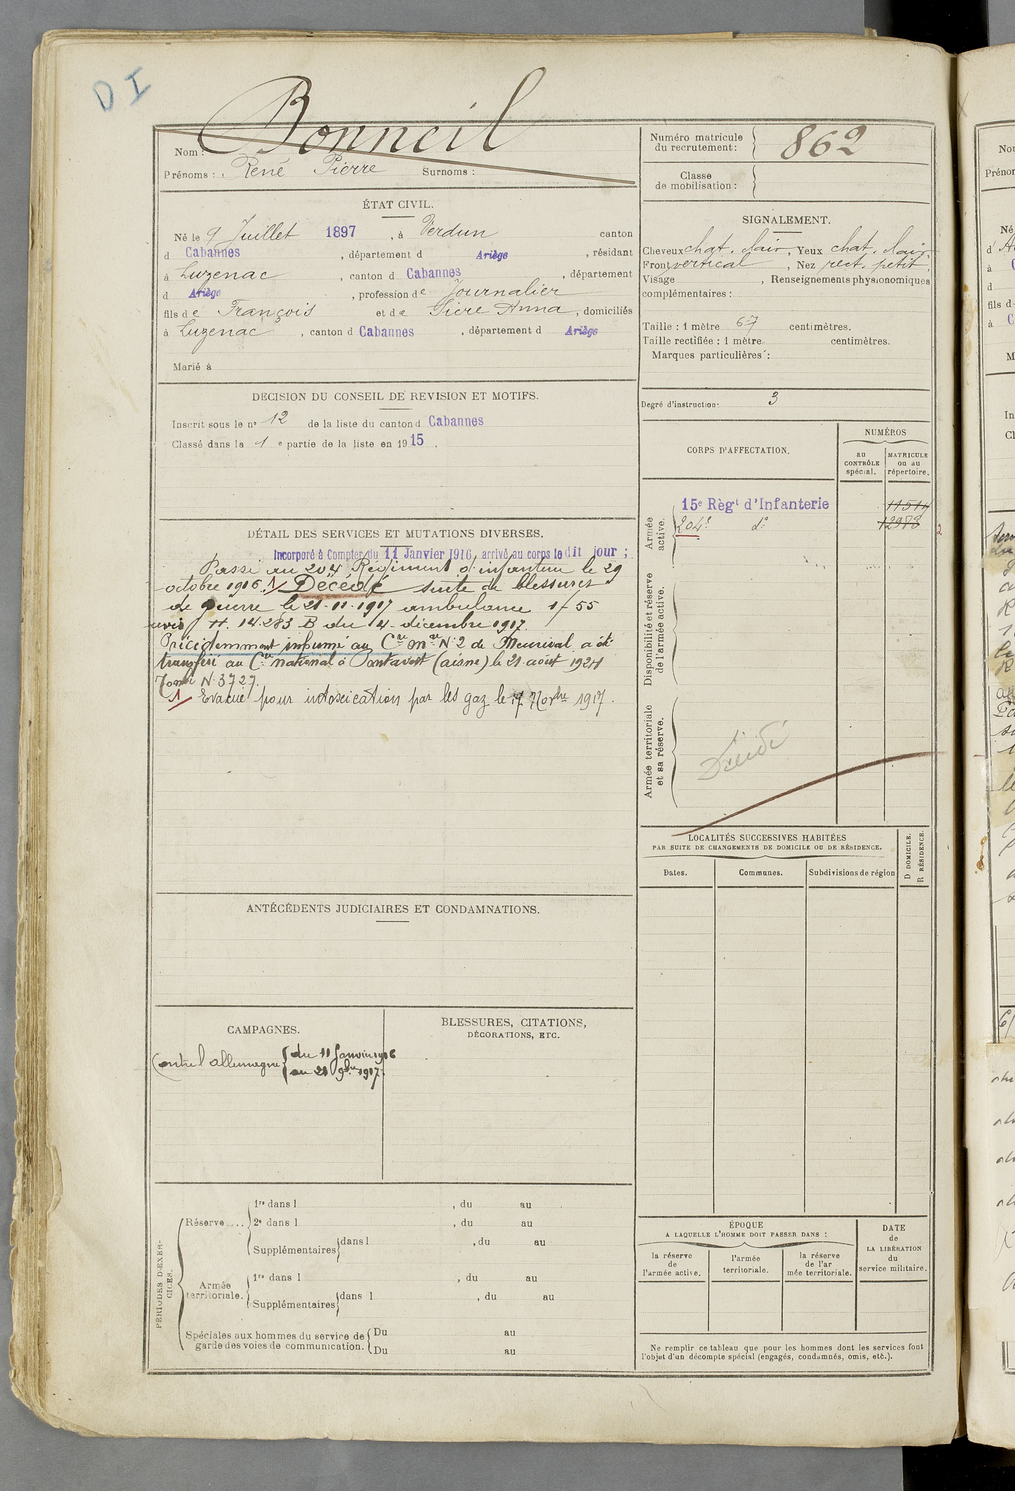 D I
Nom : Bonneil
Prénoms : René Pierre Surnoms :
Numéro matricule du recrutement : 862
Classe de mobilisation :
ÉTAT CIVIL.
Né le 9 Juillet 1897, à Verdun canton
d Cabannes, département d Ariège, résidant
à Luzenac, canton d Cabannes, département
d Ariège, profession de Journalier
fils de François et de Sicre Anna, domiciliés
à Luzenac, canton d Cabannes, département d Ariège
Marié à
SIGNALEMENT.
Cheveux chat. clair, Yeux chat. clair,
Front vertical, Nez rect. petit,
Visage , Renseignements physionomiques
complémentaires :
Taille : 1 mètre 67 centimètres.
Taille rectifiée : 1 mètre centimètres.
Marques particulières :
Degré d'instruction : 3
DÉCISION DU CONSEIL DE REVISION ET MOTIFS.
Inscrit sous le n° 12 de la liste du canton d Cabannes
Classé dans la 1 e partie de la liste en 1915.
CORPS D'AFFECTATION.
NUMÉROS
au CONTRÔLE spécial.
MATRICULE ou au répertoire.
Armée active.
15e Régt d'Infanterie 11511
204e do 12973
2
Disponibilité et réserve de l'armée active.
Armée territoriale et sa réserve.
Décédé
DÉTAIL DES SERVICES ET MUTATIONS DIVERSES.
Incorporé à Compter du 11 Janvier 1916, arrivé au corps le dit jour ;
Passé au 204 Régiment d'infanterie le 29
octobre 1916. 1/ Décédé suite de blessures
de guerre le 21-11-1917 ambulance 1/55
avis 14.283 B du 4 décembre 1917.
Précédemment inhumé au Cre Mre N° 2 de Meurival a été
transféré au Cre national à Pontavert (aisne) le 21 août 1924
Tombe N° 3727.
1/ Evacué pour intoxication par les gaz le 17 Novbre 1917.
LOCALITÉS SUCCESSIVES HABITÉES
PAR SUITE DE CHANGEMENTS DE DOMICILE OU DE RÉSIDENCE.
Dates.
Communes.
Subdivisions de région
D DOMICILE.
R RÉSIDENCE.
ANTÉCÉDENTS JUDICIAIRES ET CONDAMNATIONS.
CAMPAGNES.
Contre l'allemagne { du 11 Janvier 1916
au 21 9bre 1917.
BLESSURES, CITATIONS,
DÉCORATIONS, ETC.
PÉRIODES D'EXERCICES.
Réserve....
1re dans l , du au
2e dans l , du au
Supplémentaires dans l , du au
Armée territoriale.
1re dans l , du au
Supplémentaires dans l , du au
Spéciales aux hommes du service de
garde des voies de communication.
Du au
Du au
ÉPOQUE
A LAQUELLE L'HOMME DOIT PASSER DANS :
la réserve de l'armée active.
l'armée territoriale.
la réserve de l'armée territoriale.
DATE
de
LA LIBÉRATION
du
service militaire.
Ne remplir ce tableau que pour les hommes dont les services font
l'objet d'un décompte spécial (engagés, condamnés, omis, etc.).